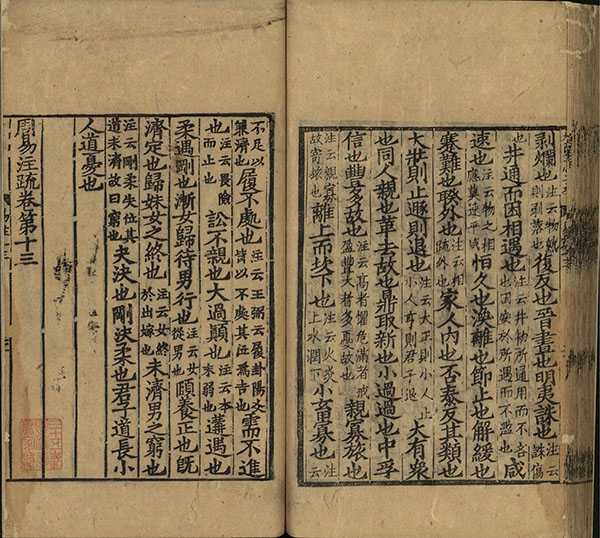 剥爛也注云物熟則剥落也復反也晉晝也明夷誅也注云誅傷
也井通而困相遇也注云井物所通用而不吝也困安於所遇而不濫也咸
速也注云物之相應莫速乎咸恒久也渙離也節止也解緩也
蹇難也睽外也注云相疎外也家人内也否泰反其類也
大壯則止遯則退也注云大正則小人止小人亨則君子退大有衆
也同人親也革去故也鼎取新也小過過也中孚
信也豐多故也注云高者懼危滿者戒盈豐大者多憂故也親寡旅
注云親寡故寄旅也離上而坎下也注云火炎上水潤下小畜寡也注云
不足以兼濟也履不處也注云王弼云履卦陽爻皆以不處其位爲吉也需不進
也注云畏險而止也訟不親也大過顛也注云本末弱也遘遇也
柔遇剛也漸女歸待男行也注云女從男也頤養正也旣
濟定也歸妹女之終也注云女終於出嫁也未濟男之窮也
注云剛柔失位其道未濟故曰窮也夬決也剛決柔也君子道長小
人道憂也
周易注疏卷第十三